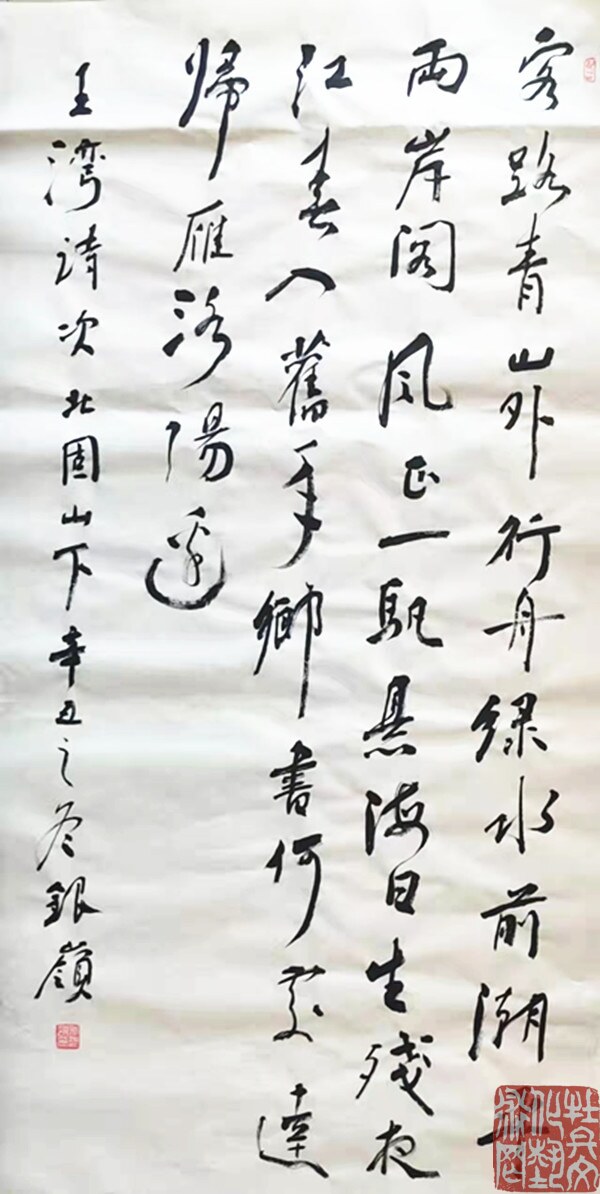 客路青山外行舟绿水前潮平
兩岸阔风正一帆悬海日生残夜
江春入舊年鄉書何处達
帰雁洛陽边
王湾诗次北固山下辛丑之冬銀嶺